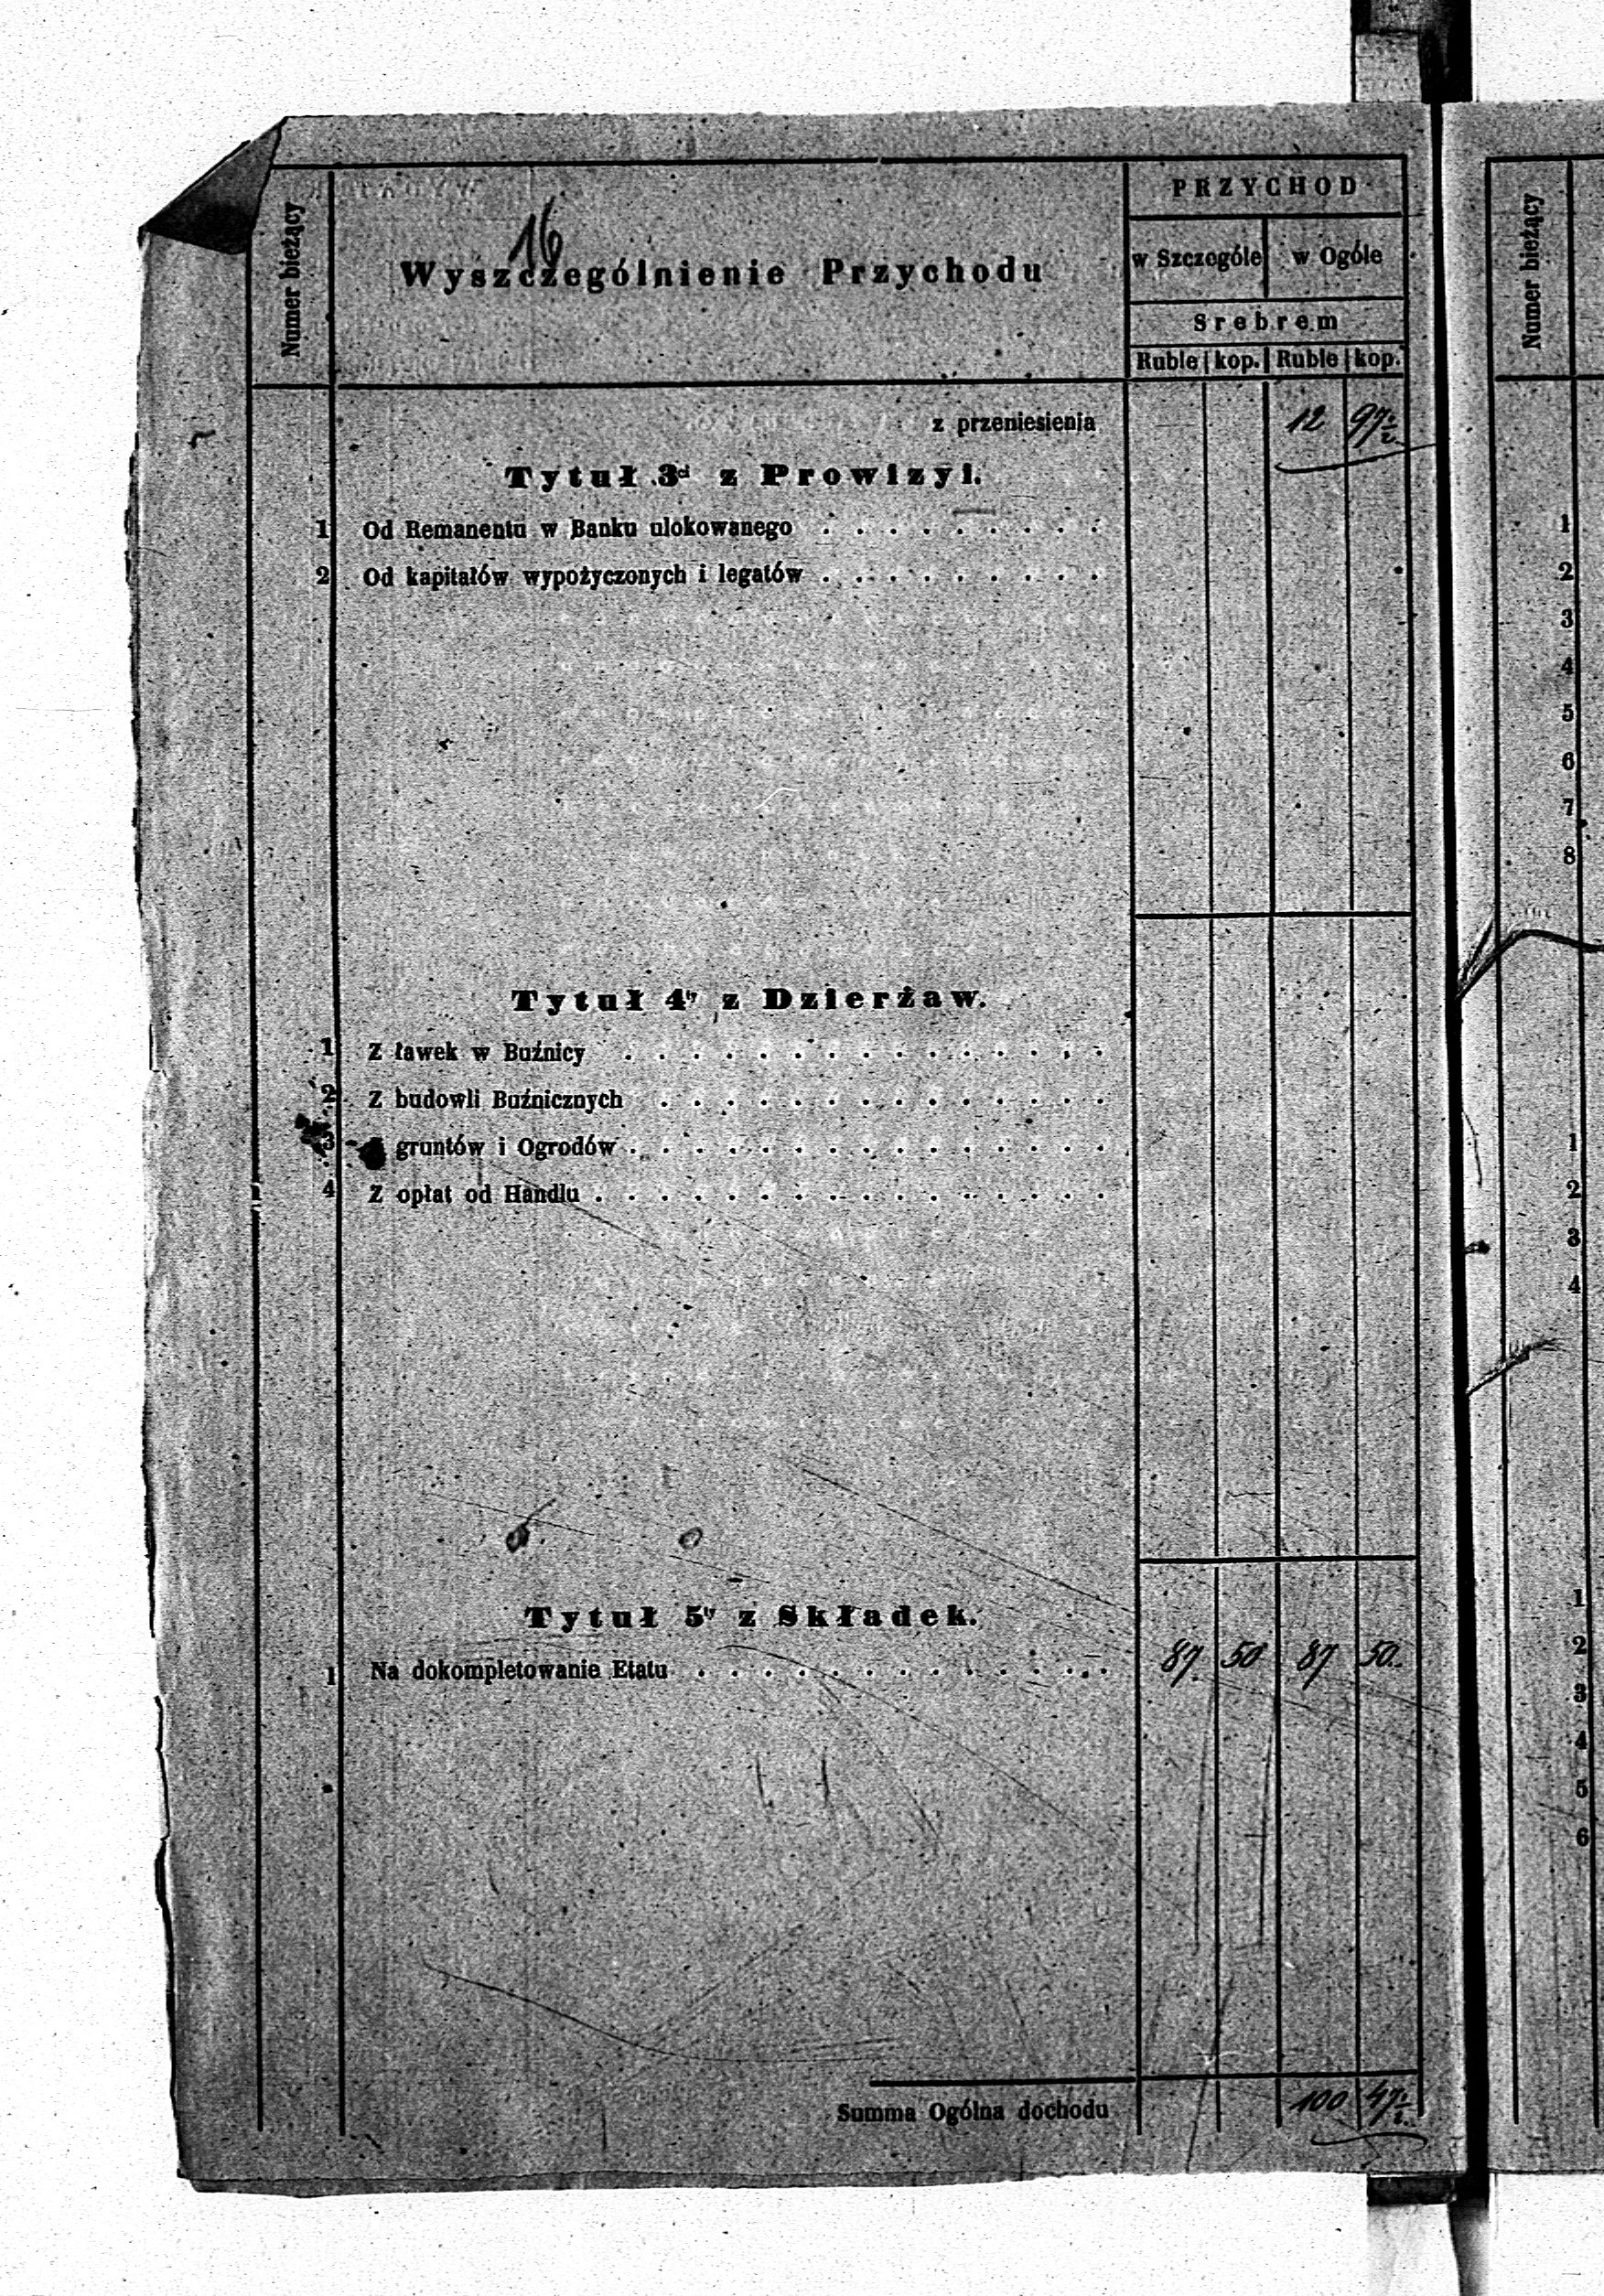 16
PRZYCHOD
Numer bieżący
Wyszczególnienie Przychodu
w Szczególe w Ogóle
Srebrem
Ruble kop. Ruble kop.
z przeniesienia 12 97½
Tytuł 3ci z Prowizyi.
1 Od Remanentu w Banku ulokowanego . . . . . . . . .
2 Od kapitałów wypożyczonych i legatów . . . . . . . . .
Tytuł 4ty z Dzierżaw.
1 Z ławek w Buźnicy . . . . . . . . . . . . . . .
2 Z budowli Buźnicznych . . . . . . . . . . . . . .
3 gruntów i Ogrodów . . . . . . . . . . . . . . .
4 Z opłat od Handlu . . . . . . . . . . . . . . . .
Tytuł 5ty z Składek.
1 Na dokompletowanie Etatu . . . . . . . . . . . . . 87 50 87 50
Summa Ogólna dochodu 100 47½
Numer bieżący
1
2
3
4
5
6
7
8
1
2
3
4
1
2
3
4
5
6